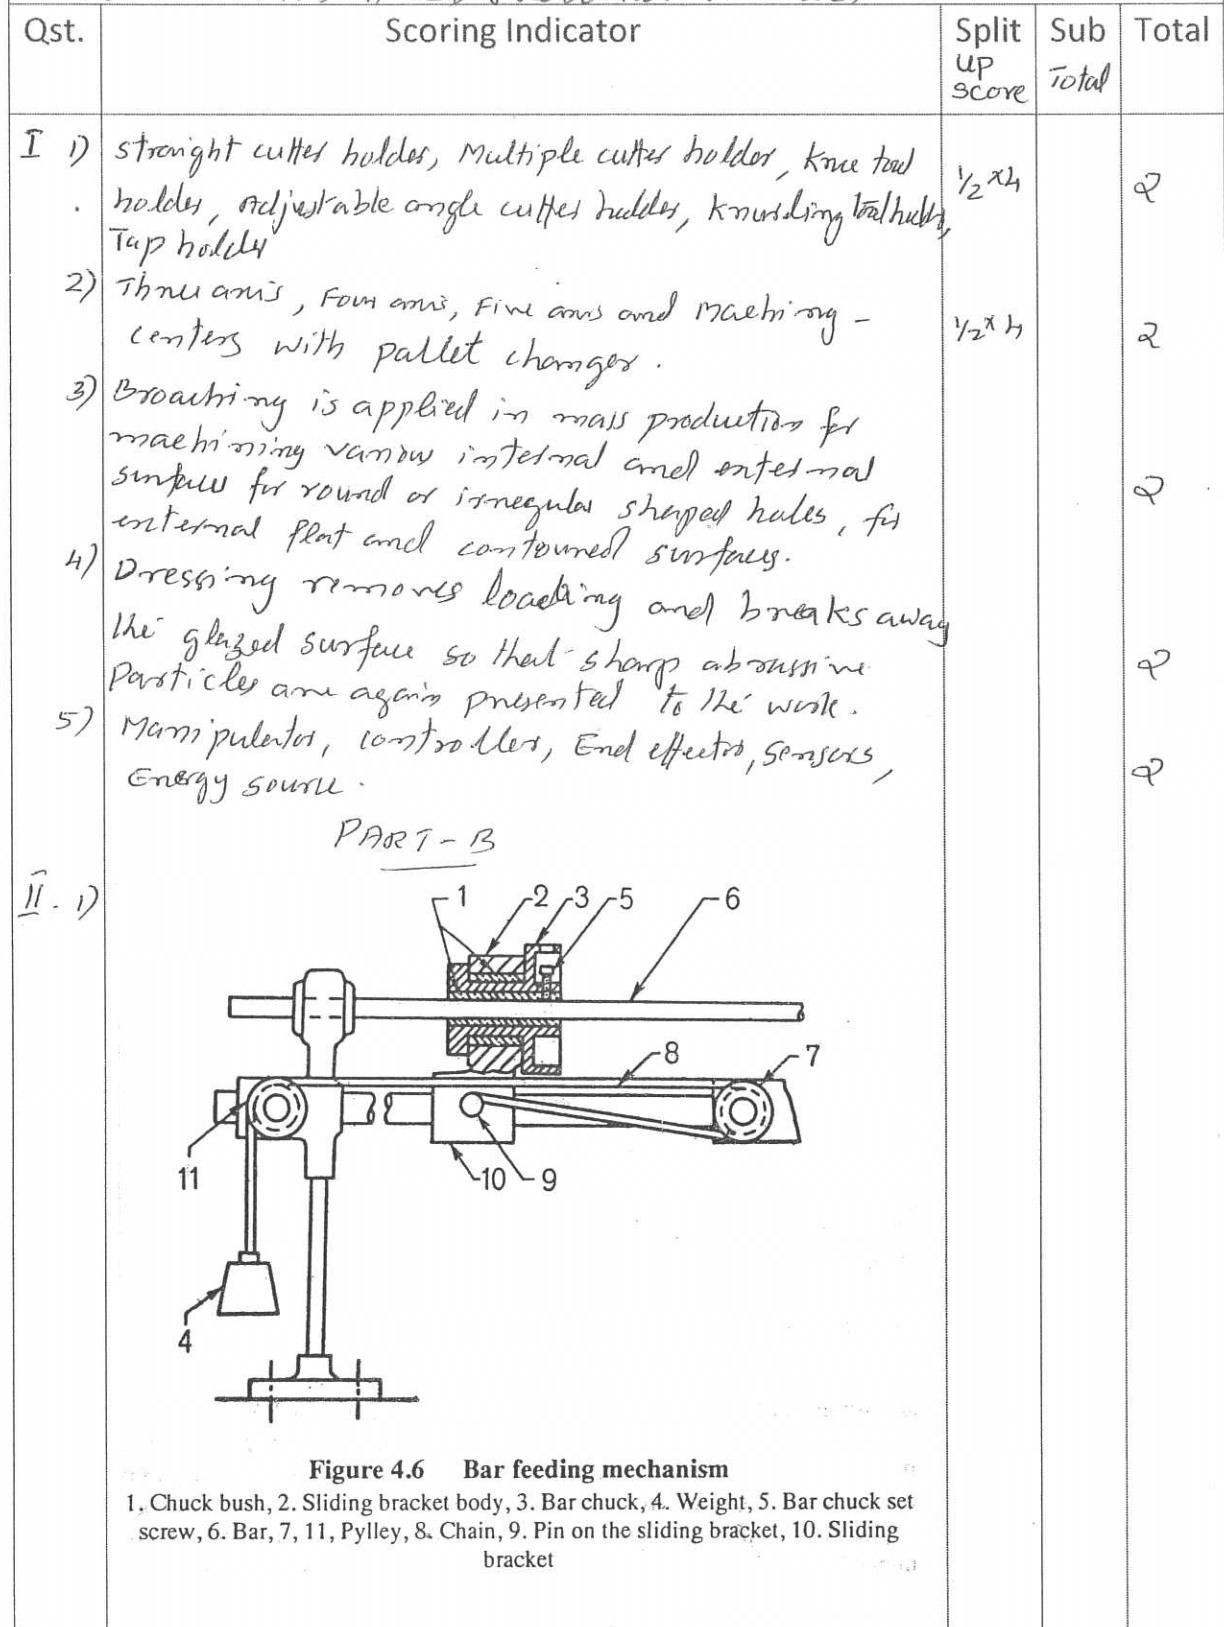 Qst. Scoring Indicator Split Sub Total
up Total
score
I 1) straight cutter holder, Multiple cutter holder, Knee tool 1/2 x4 2
holder, Adjustable angle cutter holder, Knurling tool holder,
Tap holder
2) Three axis, Four axis, Five axis and Machining - 1/2 x 4 2
centers with pallet changer.
3) Broaching is applied in mass production for
machining various internal and external
surfaces for round or irregular shaped holes, for 2
external flat and contoured surfaces.
4) Dressing removes loading and breaks away
the glazed surface so that sharp abrassive 2
Particles are again presented to the work.
5) Manipulator, controller, End effector, sensors, 2
Energy source.
PART-B
II. 1)
1 2 3 5 6
8 7
11 10 9
4
Figure 4.6 Bar feeding mechanism
1. Chuck bush, 2. Sliding bracket body, 3. Bar chuck, 4. Weight, 5. Bar chuck set
screw, 6. Bar, 7, 11, Pylley, 8. Chain, 9. Pin on the sliding bracket, 10. Sliding
bracket